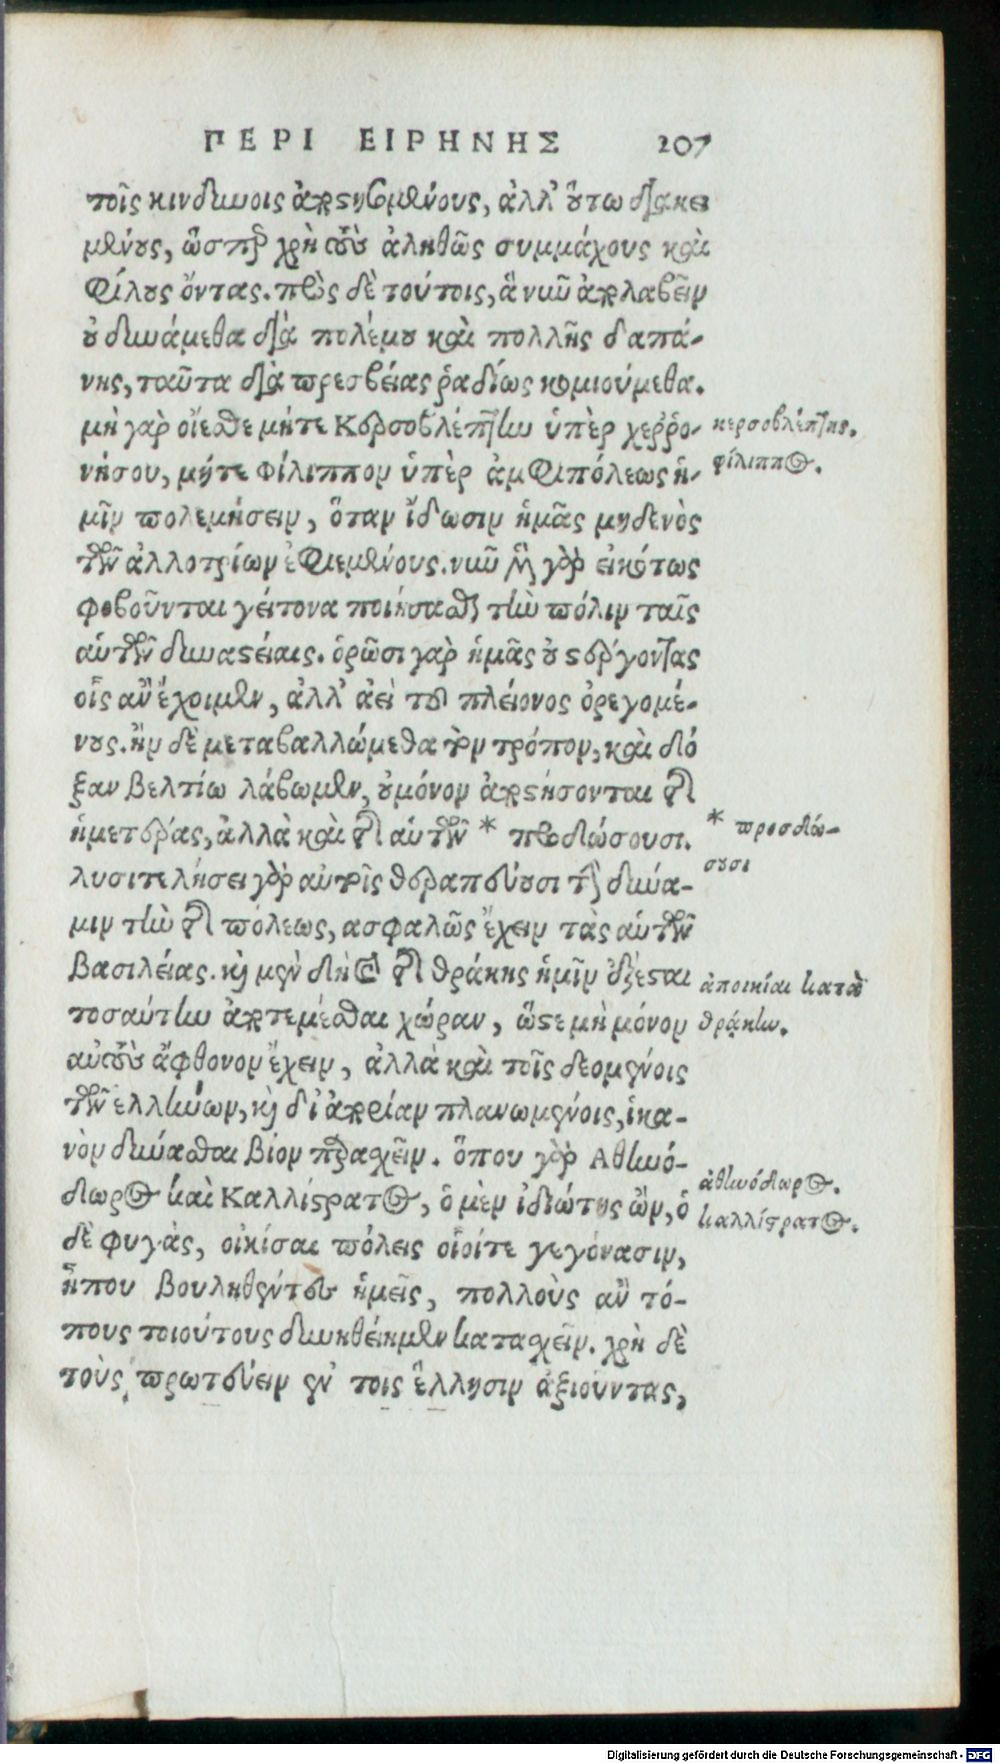 ΠΕΡΙ ΕΙΡΗΝΗΣ 207
τοῖς κινδύνοις ἀποστησομένους, ἀλλ' οὕτω διακει
μένους, ὥσπερ χρὴ τοὺς ἀληθῶς συμμάχους καὶ
φίλους ὄντας. πρὸς δὲ τούτοις, ἃ νῦν ἀπολαβεῖν
οὐ δυνάμεθα διὰ πολέμου καὶ πολλῆς δαπά-
νης, ταῦτα διὰ πρεσβείας ῥαδίως κομιούμεθα.
μὴ γὰρ οἴεσθε μήτε Κερσοβλέπτην ὑπὲρ χερρο-
νήσου, μήτε Φίλιππον ὑπὲρ ἀμφιπόλεως ἡ-
μῖν πολεμήσειν, ὅταν ἴδωσιν ἡμᾶς μηδενὸς
τῶν ἀλλοτρίων ἐφιεμένους. νῦν μὲν γὰρ εἰκότως
φοβοῦνται γείτονα ποιήσασθαι τὴν πόλιν ταῖς
αὑτῶν δυναστείαις. ὁρῶσι γὰρ ἡμᾶς οὐ στέργοντας
οἷς ἂν ἔχοιμεν, ἀλλ' ἀεὶ τοῦ πλείονος ὀρεγομέ-
νους. ἢν δὲ μεταβαλλώμεθα τὸν τρόπον, καὶ δό
ξαν βελτίω λάβωμεν, οὐ μόνον ἀποστήσονται τῆς
ἡμετέρας, ἀλλὰ καὶ τῆς αὑτῶν * προδώσουσι.
λυσιτελήσει γὰρ αὐτοῖς θεραπεύουσι τὴν δύνα-
μιν τὴν τῆς πόλεως, ἀσφαλῶς ἔχειν τὰς αὑτῶν
βασιλείας. καὶ μὲν δὴ καὶ τῆς θρᾴκης ἡμῖν ἐξέσται
τοσαύτην ἀποτεμέσθαι χώραν, ὥστε μὴ μόνον
αὐτοὺς ἄφθονον ἔχειν, ἀλλὰ καὶ τοῖς δεομένοις
τῶν ἑλλήνων, καὶ δι' ἀπορίαν πλανωμένοις, ἱκα-
νὸν δύνασθαι βίον παρασχεῖν. ὅπου γὰρ Ἀθηνό-
δωρος καὶ Καλλίστρατος, ὁ μὲν ἰδιώτης ὢν, ὁ
δὲ φυγὰς, οἰκίσαι πόλεις οἷοίτε γεγόνασιν,
ἦπου βουληθέντες ἡμεῖς, πολλοὺς ἂν τό-
πους τοιούτους δυνηθείημεν κατασχεῖν. χρὴ δὲ
τοὺς πρωτεύειν ἐν τοῖς ἕλλησιν ἀξιοῦντας,
κερσοβλέπτης.
φίλιππος.
* προσδώ-
σουσι
ἀποικίαι κατὰ
θρᾴκην.
ἀθηνόδωρος.
καλλίστρατος.
Digitalisierung gefördert durch die Deutsche Forschungsgemeinschaft - DFG